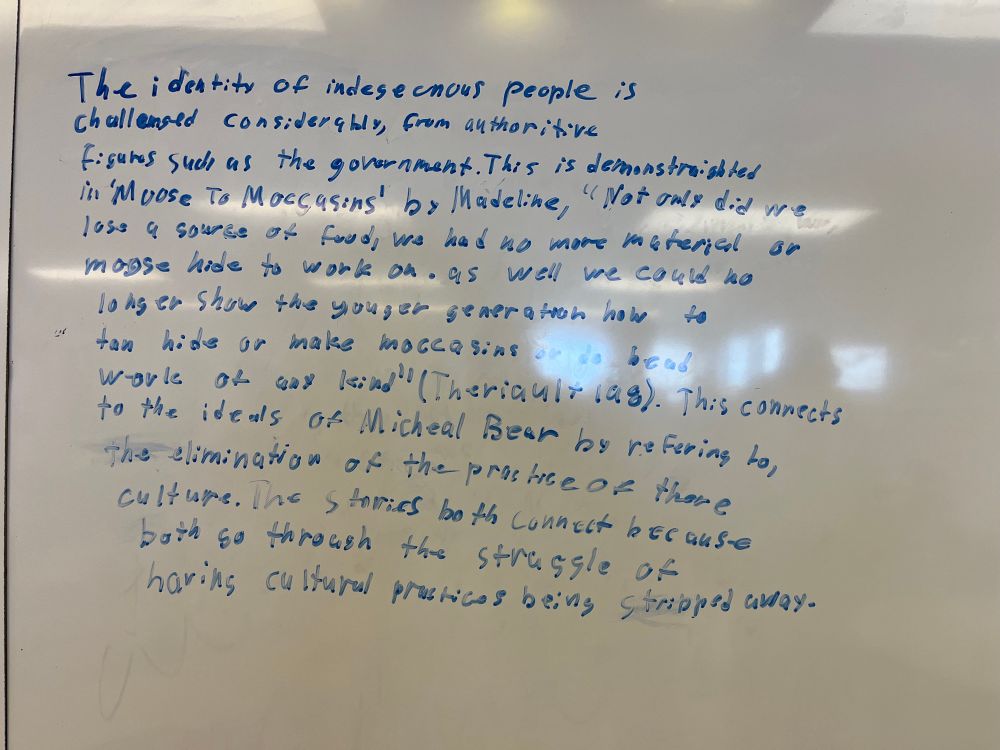 The identity of indegecnous people is
challenged considerably, from authoritive
figures such as the government. This is demonstraighted
in 'Moose To Moccasins' by Madeline, "Not only did we
lose a source of food, we had no more material or
moose hide to work on. as well we could no
longer show the younger generation how to
tan hide or make moccasins or do bead
work of any kind" (Theriault 108). This connects
to the ideals of Micheal Bear by refering to,
the elimination of the practice of there
culture. The stories both connect because
both go through the struggle of
having cultural practices being stripped away.